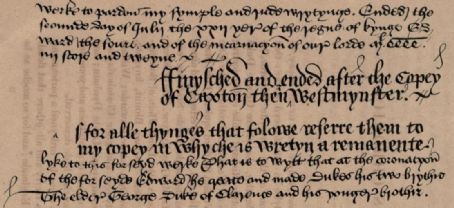 werke to pardon my symple and rude wrytynge. Ended the
secounde day of Julii the xxii yer of the regne of kynge Ed
ward the fourt. and of the incarnacyon of oure lorde a M cccc.
iiii score and tweyne.
ffinysched and ended after the copey
of Caxton then in Westmynster.
As for alle thynges that folowe referre them to
my copey in whyche is wretyn a remanente
lyke to this forseyd werke That is to wytt that at the coronacyon
of the forseyde Edward he create and made Dukes his two brythir
The elder George Duke of Clarence and his yonger brothir.